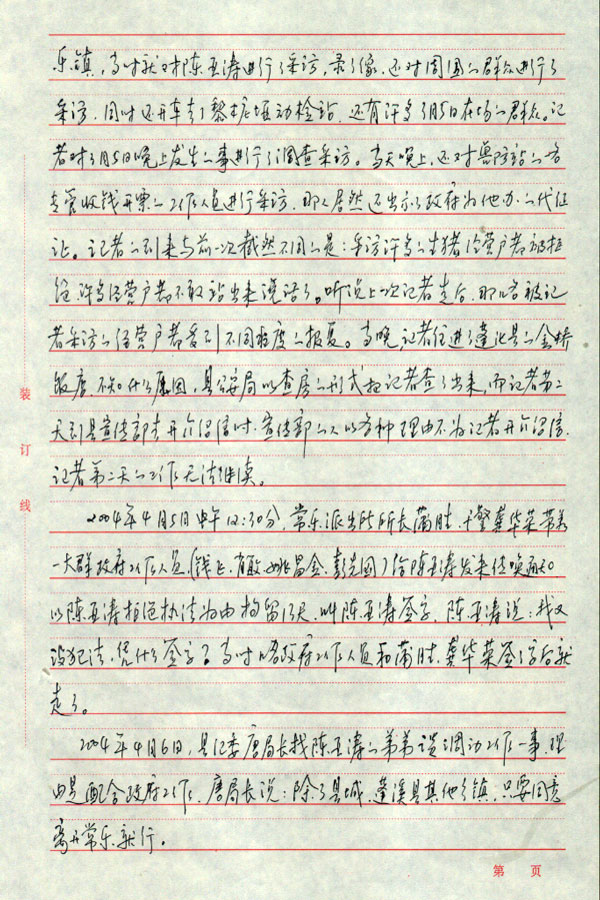 乐镇，当时就对陈亚涛进行了采访，录了像，还对周围的群众进行了
采访，同时还开车去了黎土底垭动检站，还有许多3月5日在场的群众。记
者对3月5日晚上发生的事进行了调查采访。当天晚上，还对兽防站的
专管收钱开票的工作人员进行采访，那人居然还出示了政府为他办的代征
证。记者的到来与前一次截然不同的是：采访许多的生猪经营户都被拒
绝，许多经营户都不敢站出来说话了。听说上次记者走后，那些被记
者采访的经营户都受到不同程度的报复。当晚，记者住进了蓬溪县的金桥
饭店，不知什么原因，县公安局以查房的形式把记者查了出来，而记者第二
天到县宣传部去开介绍信时，宣传部的人以各种理由不为记者开介绍信，
记者第二天的工作无法继续。
2004年4月5日中午12:30分，常乐派出所所长蒲胜、干警龚华荣带着
一大群政府工作人员（钱飞、姚昌金、彭先国）给陈亚涛发来传唤通知。
以陈亚涛拒绝执法为由拘留15天，叫陈亚涛签字，陈亚涛说：我又
没犯法，凭什么签字？当时政府工作人员和蒲胜、龚华荣签了字后就
走了。
2004年4月6日，县纪委唐局长找陈亚涛的弟弟谈调动工作一事，理
由是配合政府工作，唐局长说：除了县城，蓬溪县其他乡镇，只要同意
离开常乐就行。
装
订
线
第 页